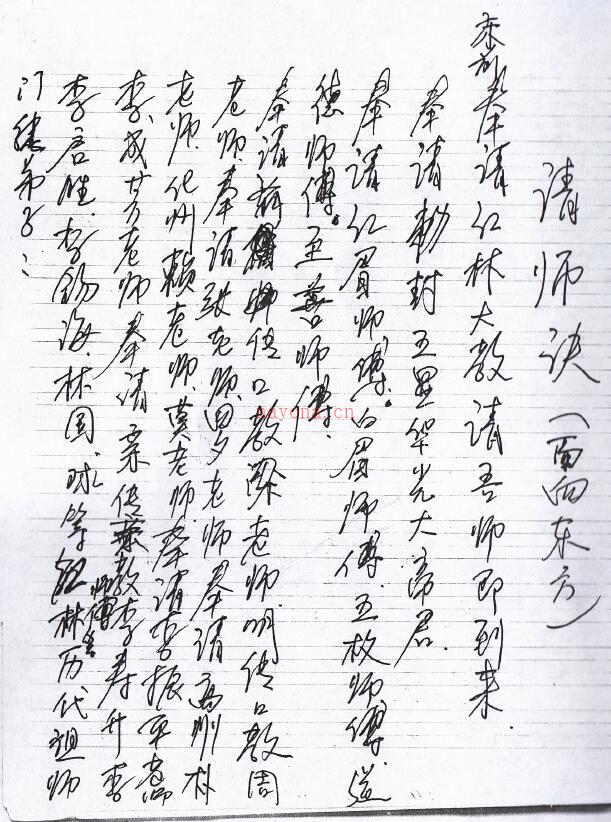 请师诀（面向东方）
奉请红林大教请吾师即到来.
奉请勅封五显华光大帝君.
奉请红眉师傅.白眉师傅.五枚师傅.
德师傅.至善师傅.
奉请 师传口教 老师.明传口教周
老师.奉请 老师.罗老师.奉请高州林
老师.化州赖老师.莫老师.奉请李振
李成芳老师.奉请 传教李寿升李
李启胜.李锡海.林国球等红林历代祖师
门 弟子：
nayona.cn